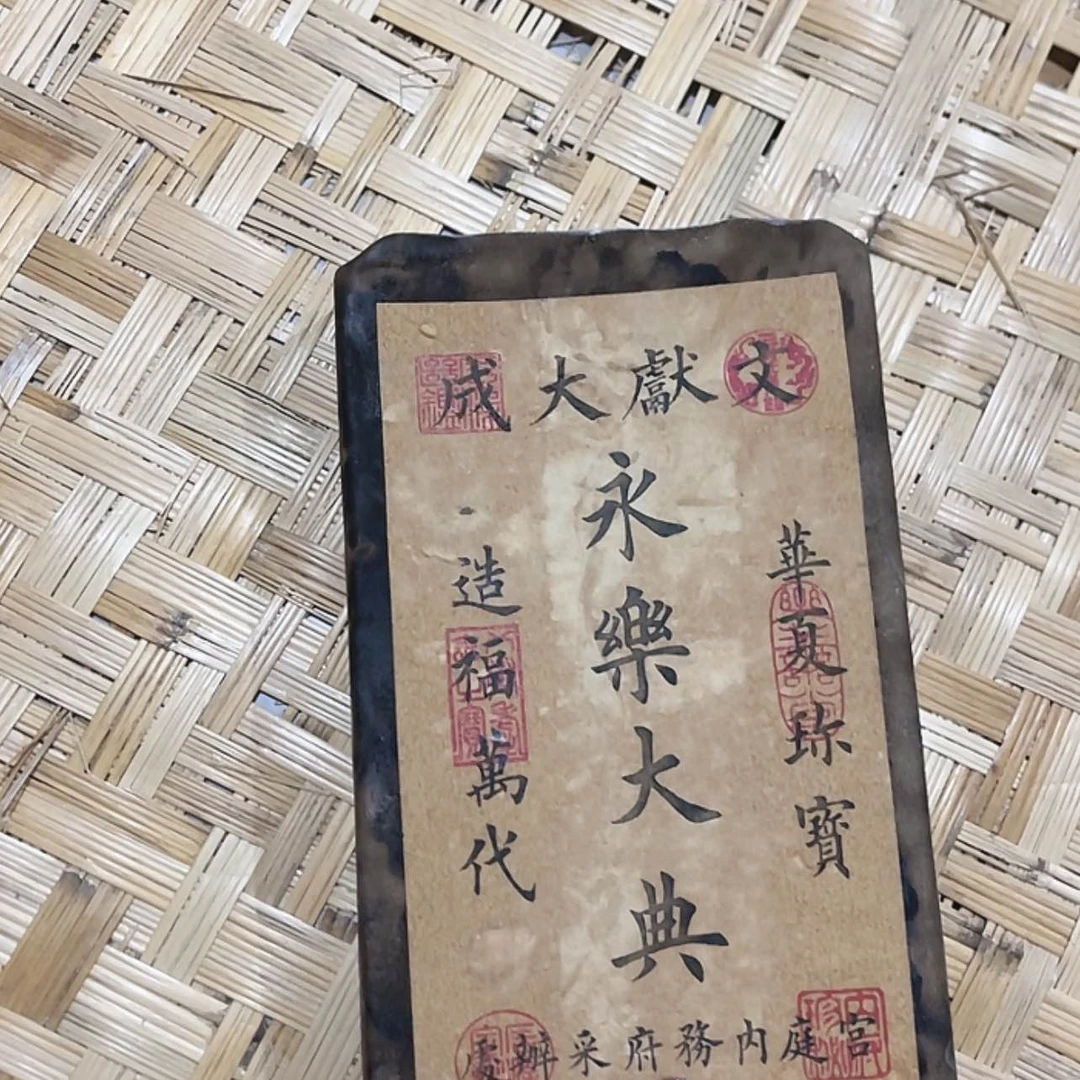 文獻大成
華夏珎寶
永樂大典
造福萬代
宮庭內務府采辦處